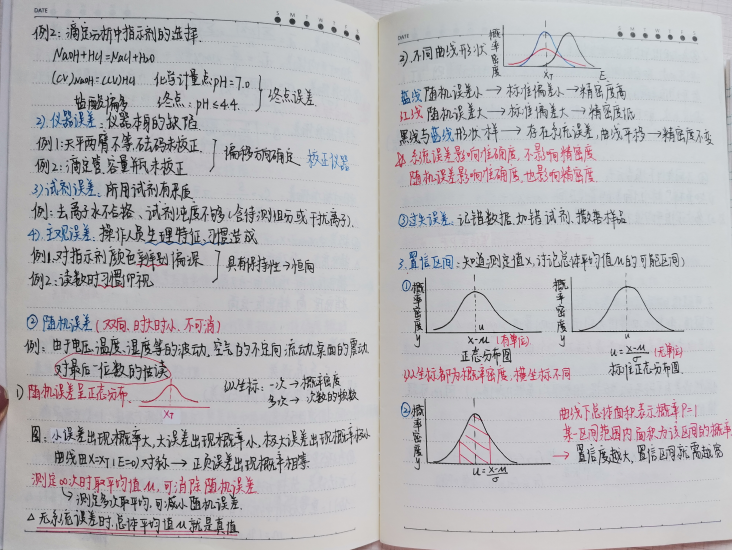 DATE
S M T W T F S
例2：滴定分析中指示剂的选择.
NaOH+HCl=NaCl+H₂O
(CV)NaOH=(CV)HCl 化学计量点:pH=7.0
甲基橙 终点：pH≤4.4.
终点误差
2).仪器误差：仪器本身的缺陷
例1：天平两臂不等.砝码未校正.
例2：滴定管.容量瓶未校正.
偏移方向确定 校正仪器
3)试剂误差：所用试剂有杂质
例：去离子水不合格、试剂纯度不够(含待测组分或干扰离子).
4).主观误差：操作人员生理特征.习惯造成
例1.对指示剂颜色辨别偏深
例2：读数时习惯仰视.
具有保持性→恒向
② 随机误差(双向、时大时小、不可消)
例：由于电压.温度、湿度等的波动.空气的不定向流动.桌面的震动.
对最后一位数的估读
1)随机误差呈正态分布.
XT
纵坐标：一次→概率密度
多次→次数的频数
图：小误差出现概率大,大误差出现概率小,极大误差出现概率极小
曲线由X=XT(E=0)对称→正负误差出现概率相等
测定∞次时取平均值μ,可消除随机误差
↳测定多次取平均.可减小随机误差.
△无系统误差时.总体平均值μ就是真值
DATE
S M T W T F S
2).不同曲线形状
概率密度
XT
E
蓝线随机误差小→标准偏差小→精密度高
红线随机误差大→标准偏差大→精密度低
黑线与蓝线形状一样→存在系统误差,曲线平移→精密度不变
系统误差影响准确度,不影响精密度
随机误差影响准确度,也影响精密度
③过失误差：记错数据.加错试剂.撒泼样品
3.置信区间：知道测定值x,讨论总体平均值μ的可能区间
①
概率密度y
x-μ (有单位)
正态分布图
概率密度y
u
u=x-μ/σ (无单位)
标准正态分布图.
纵坐标都为概率密度,横坐标不同
②
概率密度y
u=x-μ/σ
曲线下总体面积表示概率P=1
某一区间范围内面积为该区间的概率
→置信度越大,置信区间就需越宽